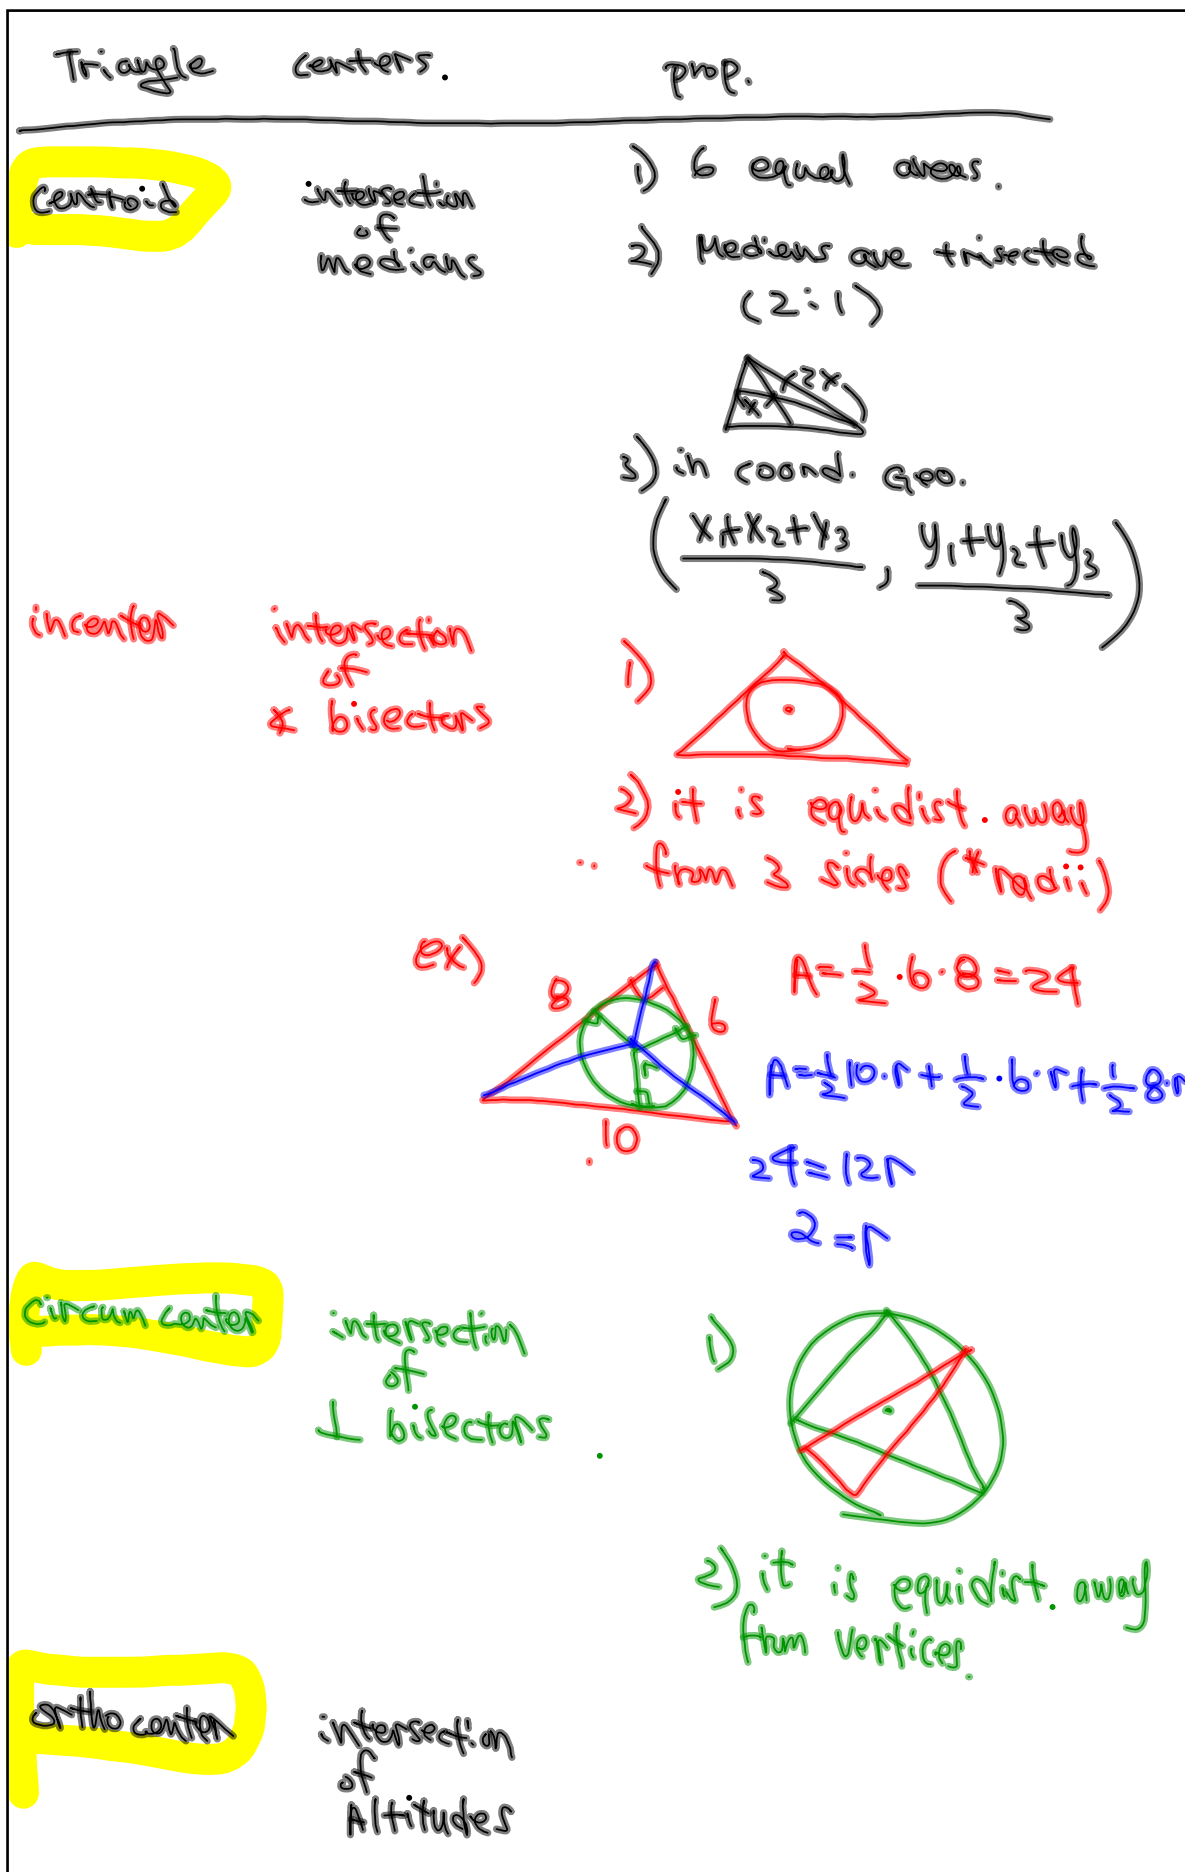 Triangle centers. prop.
centroid
intersection
of
medians
1) 6 equal areas.
2) Medians are trisected
(2:1)
x 2x
3) in coord. Geo.
( (x1+x2+x3)/3 , (y1+y2+y3)/3 )
incenter
intersection
of
∡ bisectors
1)
2) it is equidist. away
from 3 sides (*radii)
ex)
8 6 r
10
A=1/2·6·8=24
A=1/2 10·r+1/2·6·r+1/2 8·r
24=12r
2=r
circum center
intersection
of
⊥ bisectors
1)
2) it is equidist. away
from vertices.
ortho center
intersection
of
Altitudes